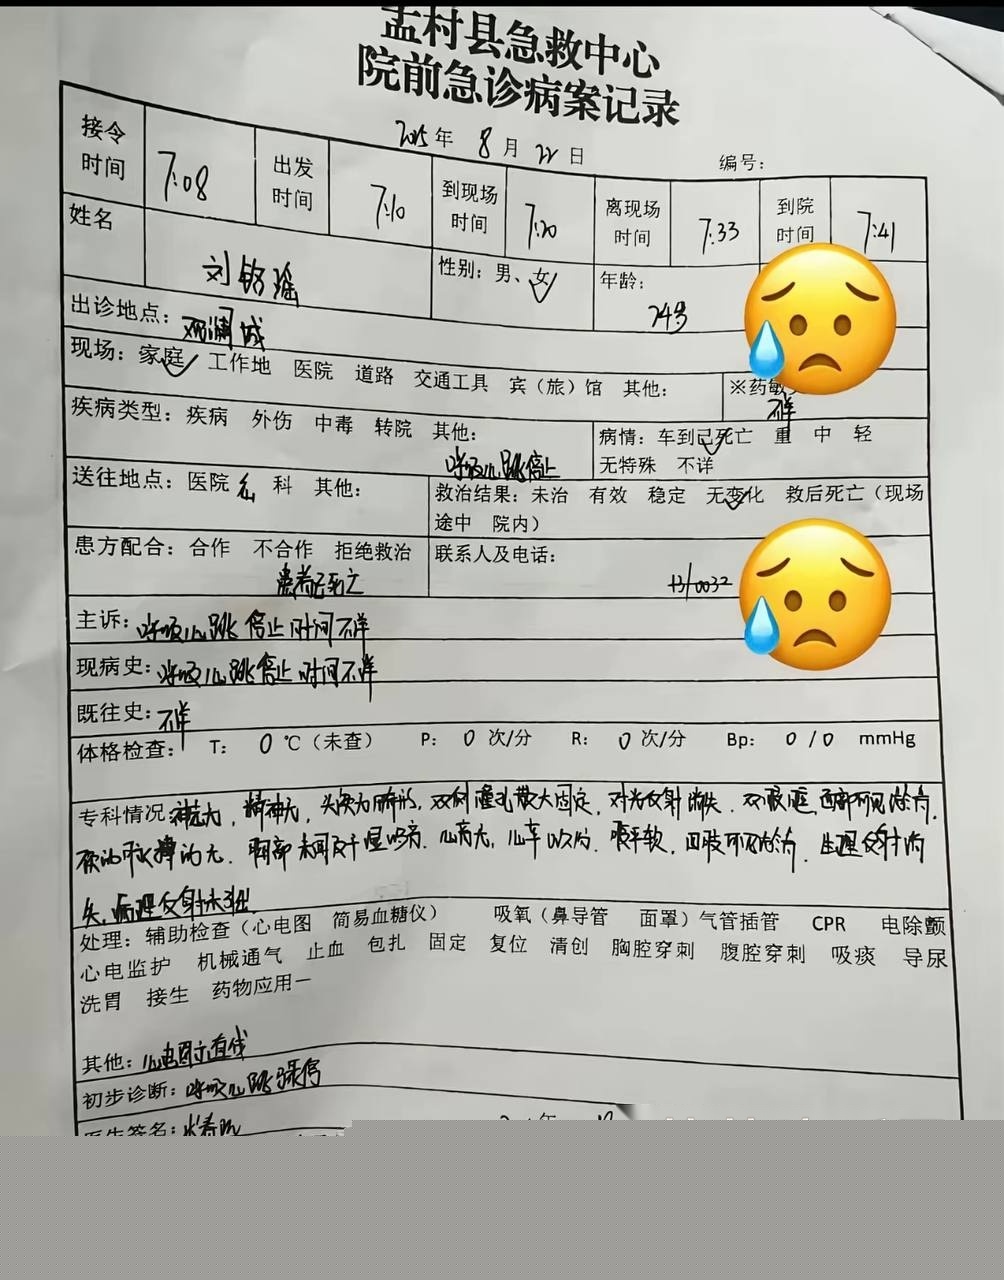 孟村县急救中心
院前急诊病案记录
2025年 8月 22日 编号：
接令时间 7:08 出发时间 7:10 到现场时间 7:20 离现场时间 7:33 到院时间 7:41
姓名 刘 瑶 性别：男、女✓ 年龄： 24岁
出诊地点： 观澜城
现场：家庭✓ 工作地 医院 道路 交通工具 宾（旅）馆 其他： ※药敏 不详
疾病类型：疾病 外伤 中毒 转院 其他： 呼吸心跳停止 病情：车到已死亡✓ 重 中 轻
无特殊 不详
送往地点：医院 科 其他： 救治结果：未治 有效 稳定 无变化✓ 救后死亡（现场
途中 院内）
患方配合：合作 不合作 拒绝救治 患者已死亡 联系人及电话：
主诉：呼吸心跳停止时间不详
现病史：呼吸心跳停止时间不详
既往史：不详
体格检查： T： 0 ℃（未查） P： 0 次/分 R： 0 次/分 Bp： 0 / 0 mmHg
专科情况：神志无，精神无，头颅无畸形，双侧瞳孔散大固定，对光反射消失，双眼睑
无，胸部未闻及干湿啰音，心音无，心率0次/分，腹平软，四肢 生理反射消
失，病理反射未引出
处理：辅助检查（心电图 简易血糖仪） 吸氧（鼻导管 面罩）气管插管 CPR 电除颤
心电监护 机械通气 止血 包扎 固定 复位 清创 胸腔穿刺 腹腔穿刺 吸痰 导尿
洗胃 接生 药物应用一
其他：心电图示直线
初步诊断：呼吸心跳骤停
医生签名：